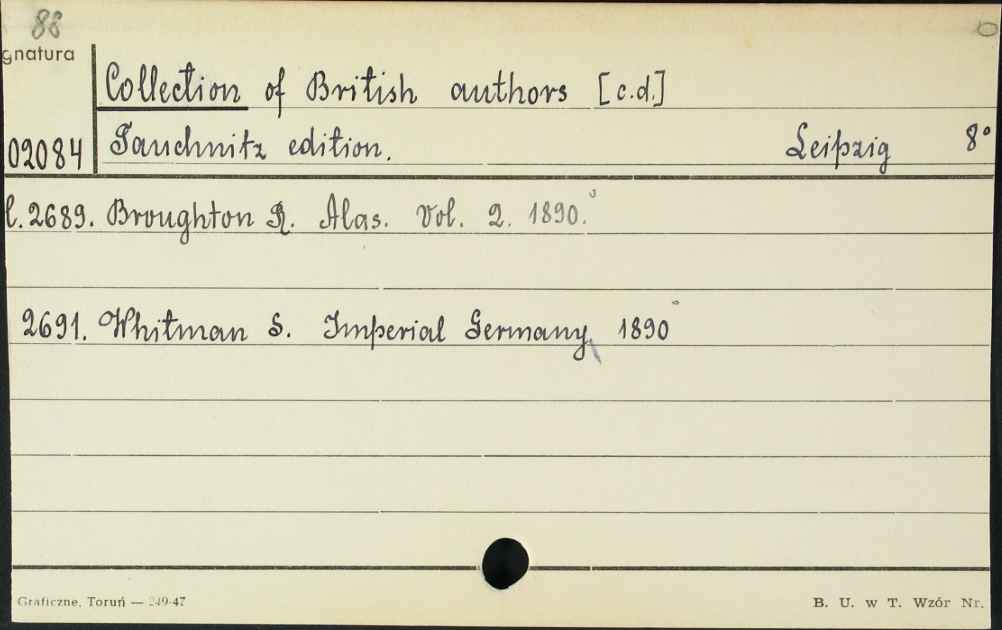 88
gnatura
Collection of British authors [c.d.]
02084 Tauchnitz edition. Leipzig 8°
l. 2689. Broughton R. Alas. Vol. 2. 1890.
2691. Whitman S. Imperial Germany, 1890
Graficzne, Toruń — 249-47 B. U. w T. Wzór Nr.